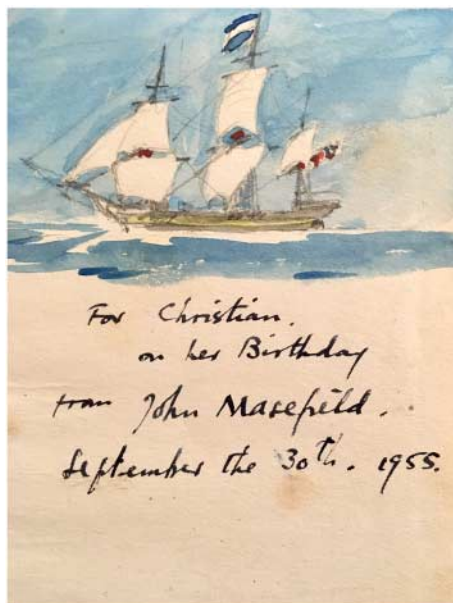 For Christian.
on her Birthday
from John Masefield.
September the 30th. 1955.